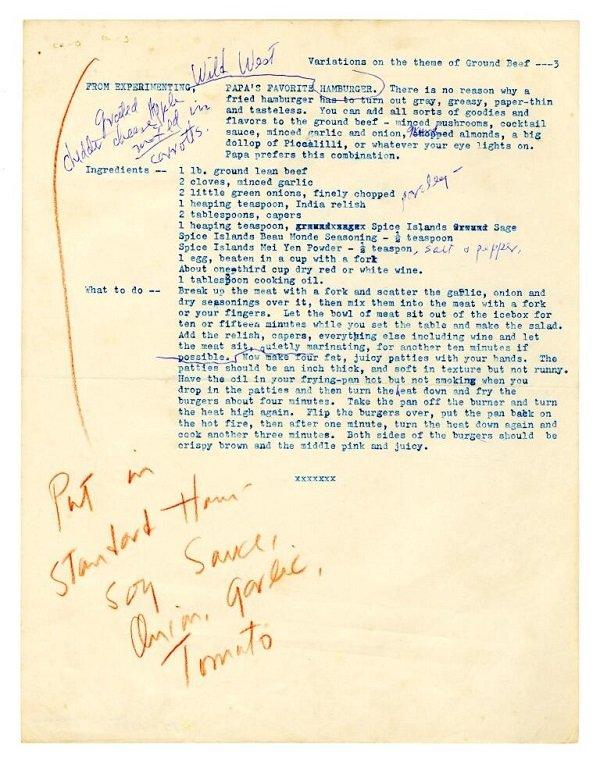 Variations on the theme of Ground Beef ---3
Wild West
FROM EXPERIMENTING, PAPA'S FAVORITE HAMBURGER. There is no reason why a
fried hamburger has to turn out gray, greasy, paper-thin
and tasteless. You can add all sorts of goodies and
flavors to the ground beef - minced mushrooms, cocktail
sauce, minced garlic and onion, chopped almonds, a big
dollop of Piccalilli, or whatever your eye lights on.
Papa prefers this combination.
grated apple
cheddar cheese
mixed in
carrots.
Ingredients -- 1 lb. ground lean beef
2 cloves, minced garlic
2 little green onions, finely chopped parsley
1 heaping teaspoon, India relish
2 tablespoons, capers
1 heaping teaspoon, Spice Islands Sage
Spice Islands Beau Monde Seasoning - ½ teaspoon
Spice Islands Mei Yen Powder - ½ teaspon, salt & pepper,
1 egg, beaten in a cup with a fork
About one third cup dry red or white wine.
1 tablespoon cooking oil.
What to do -- Break up the meat with a fork and scatter the garlic, onion and
dry seasonings over it, then mix them into the meat with a fork
or your fingers. Let the bowl of meat sit out of the icebox for
ten or fifteen minutes while you set the table and make the salad.
Add the relish, capers, everything else including wine and let
the meat sit, quietly marinating, for another ten minutes if
possible. Now make four fat, juicy patties with your hands. The
patties should be an inch thick, and soft in texture but not runny.
Have the oil in your frying-pan hot but not smoking when you
drop in the patties and then turn the heat down and fry the
burgers about four minutes. Take the pan off the burner and turn
the heat high again. Flip the burgers over, put the pan back on
the hot fire, then after one minute, turn the heat down again and
cook another three minutes. Both sides of the burgers should be
crispy brown and the middle pink and juicy.
xxxxxxx
Put in
Standard Ham-
soy Sauce,
Onion, garlic,
Tomato